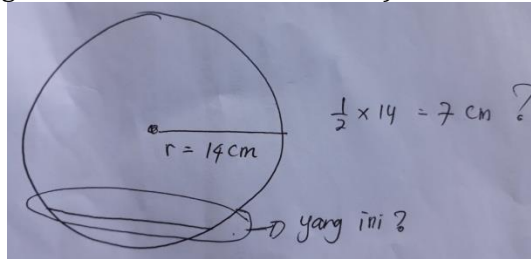 r = 14 cm
½ × 14 = 7 cm ?
yang ini ?